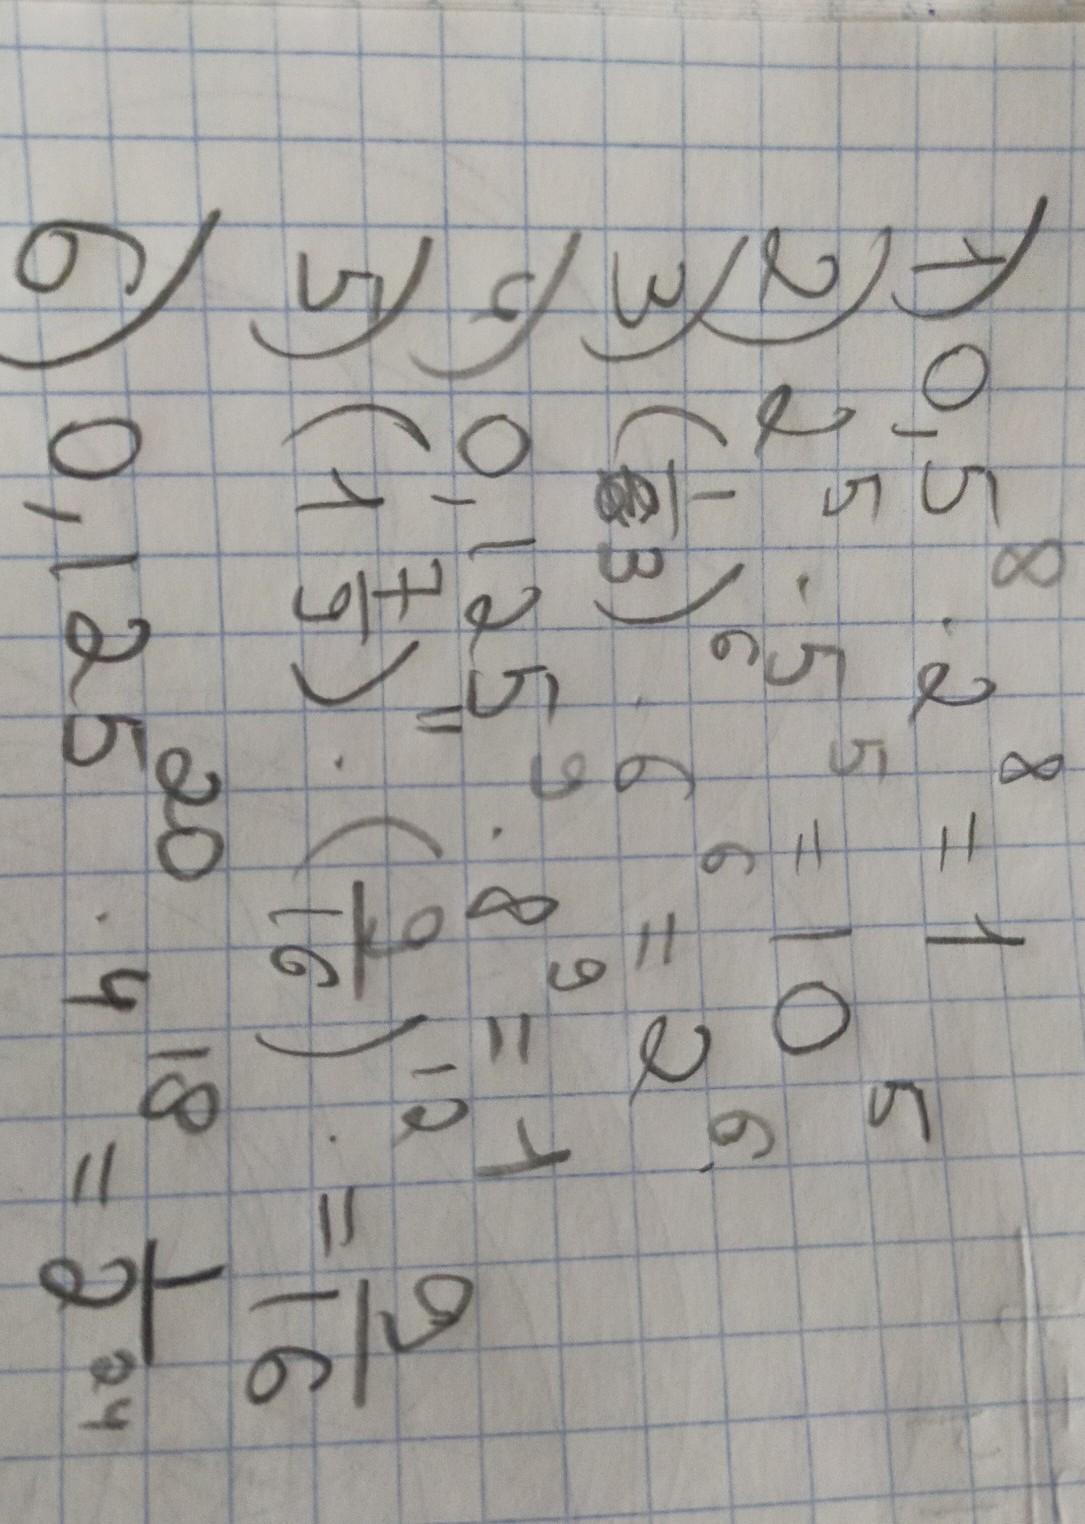 1) 0,5⁸ · 2⁸ = 1
2) 2⁵ · 5⁵ = 10⁵
3) (1/3)⁶ · 6⁶ = 2⁶
4) 0,125⁹ · 8⁹ = 1
5) (1 7/9)¹¹ · (9/16)¹² · = 9/16
6) 0,125²⁰ · 4¹⁸ = 1/2²⁴